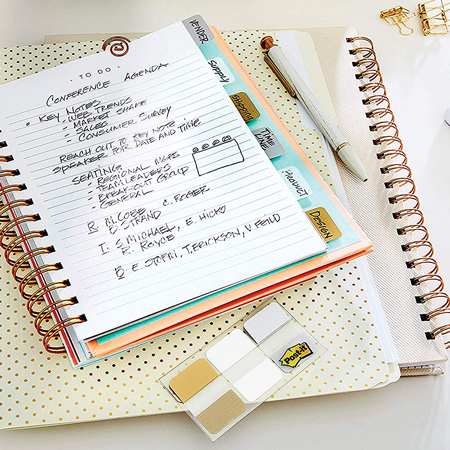 - TO DO -
CONFERENCE AGENDA
• KEY NOTES
- WEB TRENDS
- MARKET SHARE
- SALES
- CONSUMER SURVEY
REACH OUT TO KEY NOTE
SPEAKER FOR DATE AND TIME
SEATING
- REGIONAL MGRS
- TEAM LEADERS
- BREAK-OUT GROUP
- GENERAL
R: M. COBB C. ROGER
B STRAND
T: S. MICHAEL, E. HICKS
R. ROYCE
B: E. STOFRI, T. ERICKSON, V FEILD
VENDER
Supply
SHIPPING
TIME LINE
PRODUCT
DESIGN
Post-it